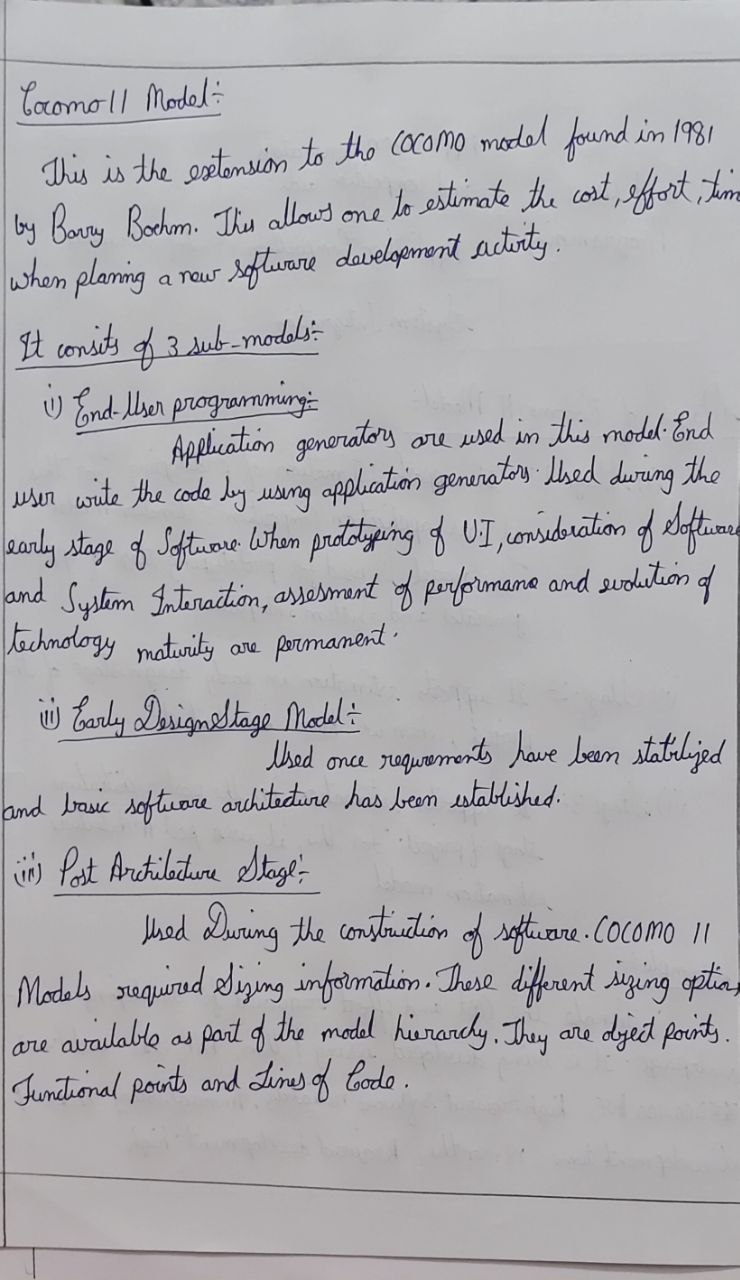 Cocomo 11 Model:-
This is the extension to the COCOMO model found in 1981
by Barry Boehm. This allows one to estimate the cost, effort, tim
when planing a new software development activity.
It consits of 3 sub-models:-
i) End-User programming:-
Application generators are used in this model. End
user write the code by using application generators. Used during the
early stage of Software. When prototyping of U.I, consideration of Software
and System Interaction, assesment of performane and evolution of
technology maturity are permanent.
ii) Early Design Stage Model:-
Used once requirements have been stabilized
and basic software architecture has been established.
(iii) Post Architecture Stage:-
Used During the construction of software. COCOMO 11
Models required Sizing information. These different sizing options
are available as part of the model hierarchy. They are object points.
Functional points and Lines of Code.